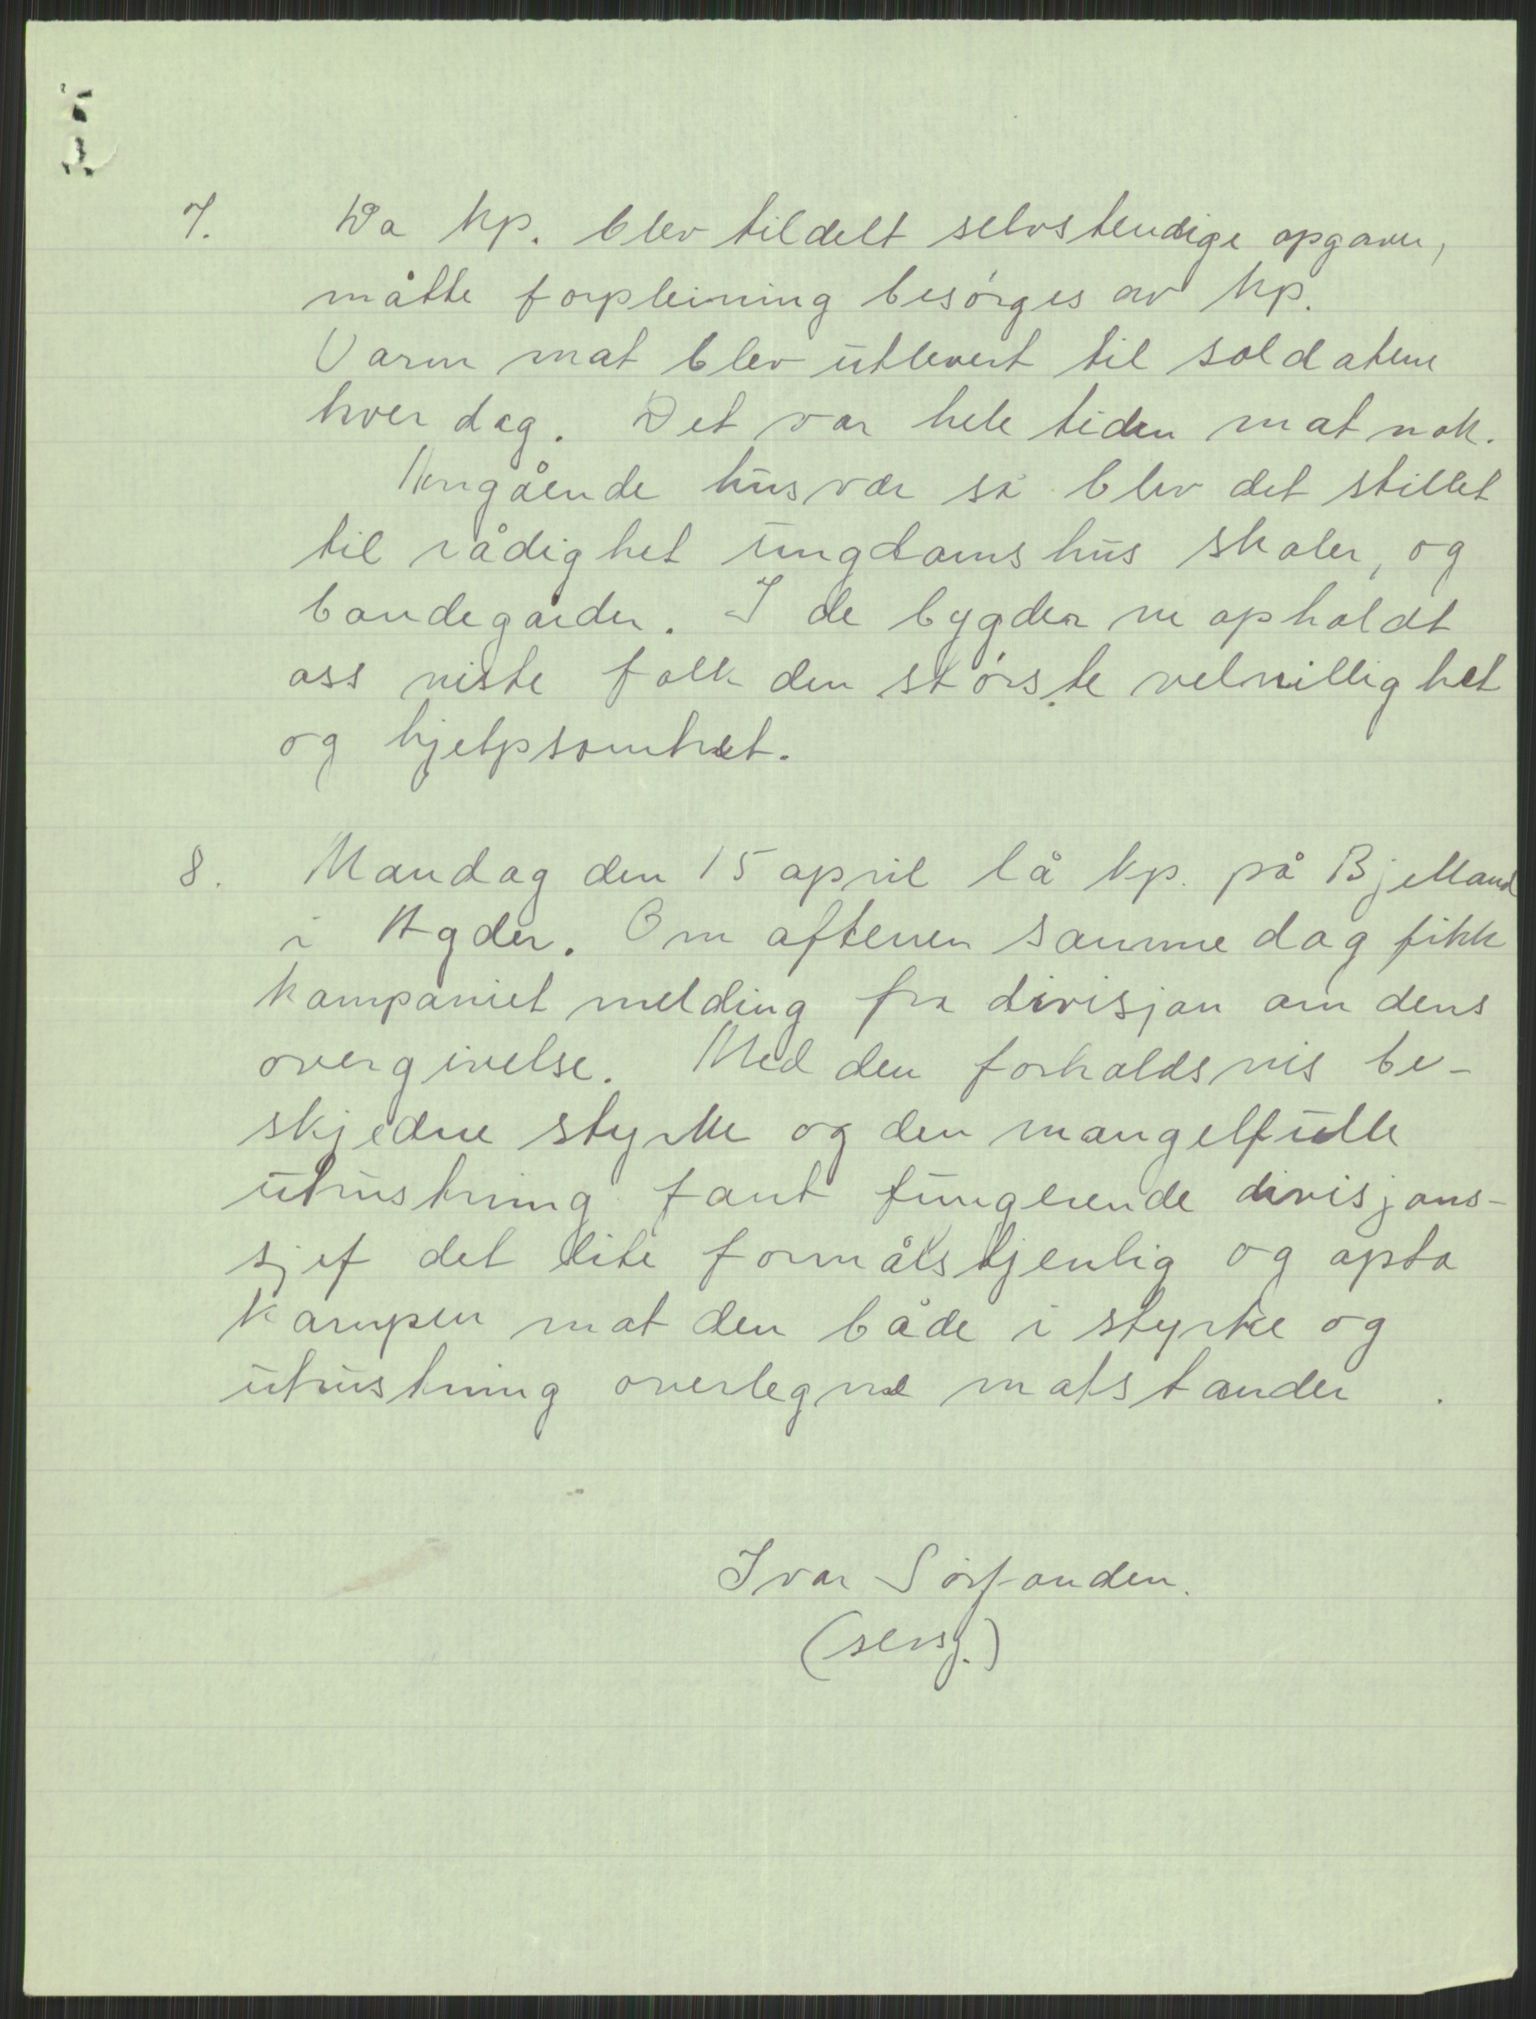 7. Da kp. blev tildelt selvstendige opgaver,
måtte forpleining besørges av kp.
Varm mat blev utlevert til soldatene
hver dag. Det var hele tiden mat nok.
Angående husvær så blev det stillet
til rådighet ungdomshus skoler, og
bondegårder. I de bygder vi opholdt
oss viste folk den største velvillighet
og hjelpsomhet.
8. Mandag den 15 april lå kp. på Bjelland
i Agder. Om aftenen samme dag fikk
kompaniet melding fra divisjon om dens
overgivelse. Med den forholdsvis be-
skjedne styrke og den mangelfulle
utrustning fant fungerende divisjons-
sjef det lite formålstjenlig og opta
kampen mot den både i styrke og
utrustning overlegne motstander .
Ivar
(sersj.)